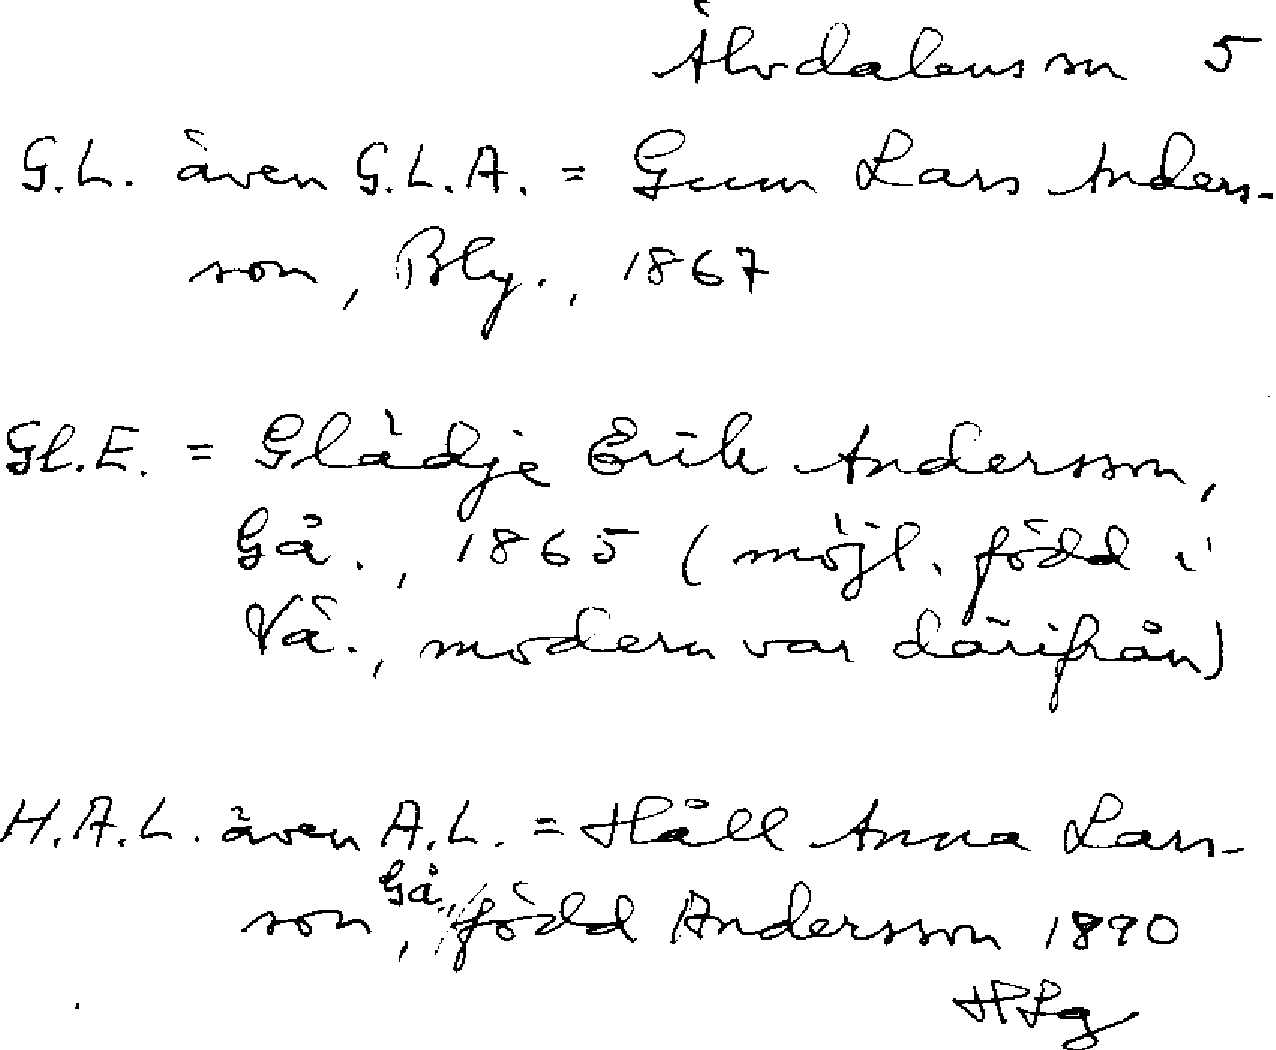 Älvdalens sn 5
G.L. även G.L.A. = Gunn Lars Anders-
son, Bly., 1867
Gl.E. = Glädje Erik Andersson,
Gå., 1865 (möjl. född i
Vå., modern var därifrån)
H.A.L. även A.L. = Håll Anna Lars-
son, Gå., född Andersson 1890
HLg